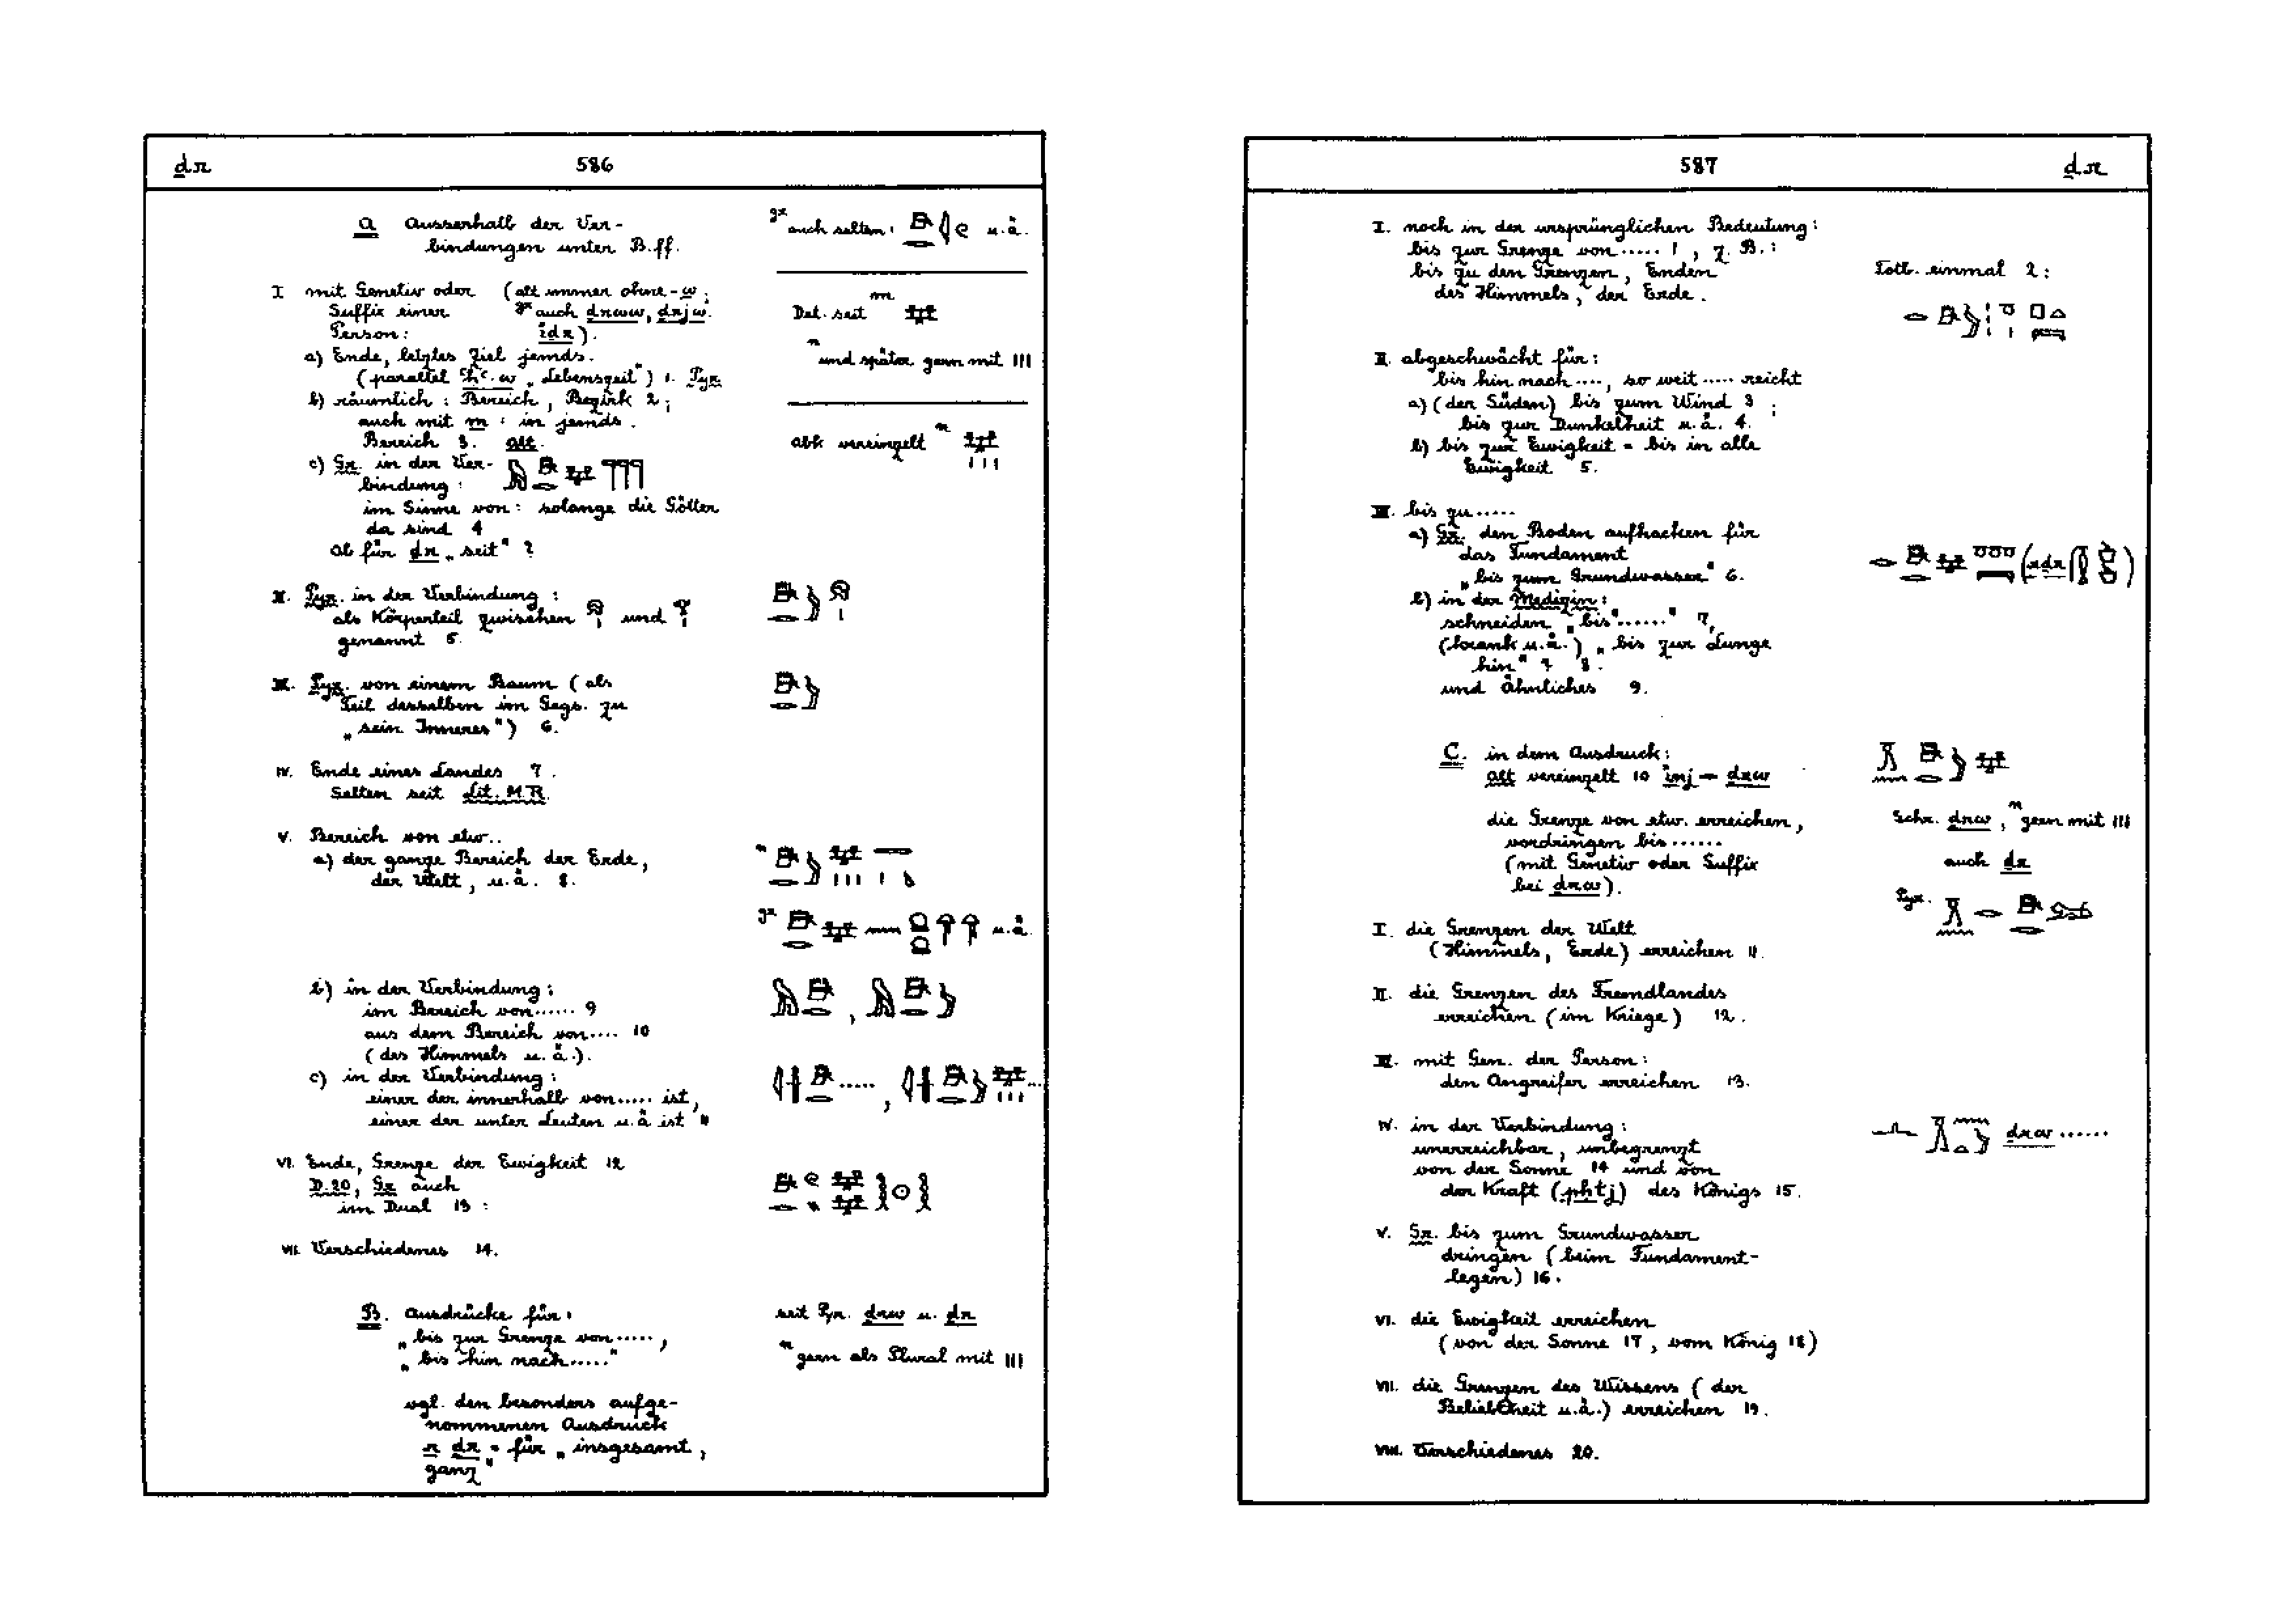 ḏr 586
A Ausserhalb der Ver-
bindungen unter B.ff.
I mit Genetiv oder (alt immer ohne -w;
Suffix einer gr auch ḏrww, ḏrjw.
Person: idr).
a) Ende, letztes Ziel jemds.
(parallel ꜥḥꜥ.w „Lebenszeit") 1. Pyr.
b) räumlich: Bereich, Bezirk 2;
auch mit m: in jemds.
Bereich 3. alt.
c) Gr. in der Ver-
bindung:
im Sinne von: solange die Götter
da sind 4
Ob für ḏr „seit"?
II. Pyr. in der Verbindung:
als Körperteil zwischen und
genannt 5.
III. Pyr. von einem Baum (als
Teil desselben im Gegs. zu
„sein Inneres") 6.
IV. Ende eines Landes 7.
Selten seit Lit. M.R.
V. Bereich von etw..
a) der ganze Bereich der Erde,
der Welt, u.ä. 8.
b) in der Verbindung:
im Bereich von...... 9
aus dem Bereich von.... 10
(des Himmels u.ä.).
c) in der Verbindung:
einer der innerhalb von..... ist,
einer der unter Leuten u.ä ist 11
VI. Ende, Grenze der Ewigkeit 12
D.20, Gr auch
im Dual 13:
VII. Verschiedenes 14.
B. Ausdrücke für:
„bis zur Grenze von.....,
„bis hin nach....."
vgl. den besonders aufge-
nommenen Ausdruck
r ḏr = für „insgesamt,
ganz"
gr auch selten: u.ä.
Det. seit m
n und später gern mit III
abk vereinzelt n
n
gr u.ä.
,
..... , ...
seit Pyr. ḏrw u. ḏr
n gern als Plural mit III
587 ḏr
I. noch in der ursprünglichen Bedeutung:
bis zur Grenze von..... 1, z.B.:
bis zu den Grenzen, Enden
des Himmels, der Erde.
II. abgeschwächt für:
bis hin nach...., so weit..... reicht
a) (der Süden) bis zum Wind 3;
bis zur Dunkelheit u.ä. 4.
b) bis zur Ewigkeit = bis in alle
Ewigkeit 5.
III. bis zu.....
a) Gr. den Boden aufhacken für
das Fundament
„bis zum Grundwasser" 6.
b) in der Medizin:
schneiden „bis"......" 7,
(krank u.ä.) „bis zur Lunge
hin" ? 8.
und Ähnliches 9.
C. in dem Ausdruck:
alt vereinzelt 10 inj — ḏrw
die Grenze von etw. erreichen,
vordringen bis......
(mit Genetiv oder Suffix
bei ḏrw).
I. die Grenzen der Welt
(Himmels, Erde) erreichen 11.
II. die Grenzen des Fremdlandes
erreichen (im Kriege) 12.
III. mit Gen. der Person:
den Angreifer erreichen 13.
IV. in der Verbindung:
unerreichbar, unbegrenzt
von der Sonne 14 und von
der Kraft (pḥtj) des Königs 15.
V. Gr. bis zum Grundwasser
dringen (beim Fundament-
legen) 16.
VI. die Ewigkeit erreichen
(von der Sonne 17, vom König 18)
VII. die Grenzen des Wissens (der
Beliebtheit u.ä.) erreichen 19.
VIII. Verschiedenes 20.
Totb. einmal 2:
Schr. ḏrw, n gern mit III
auch ḏr
Pyr.
ḏrw ......